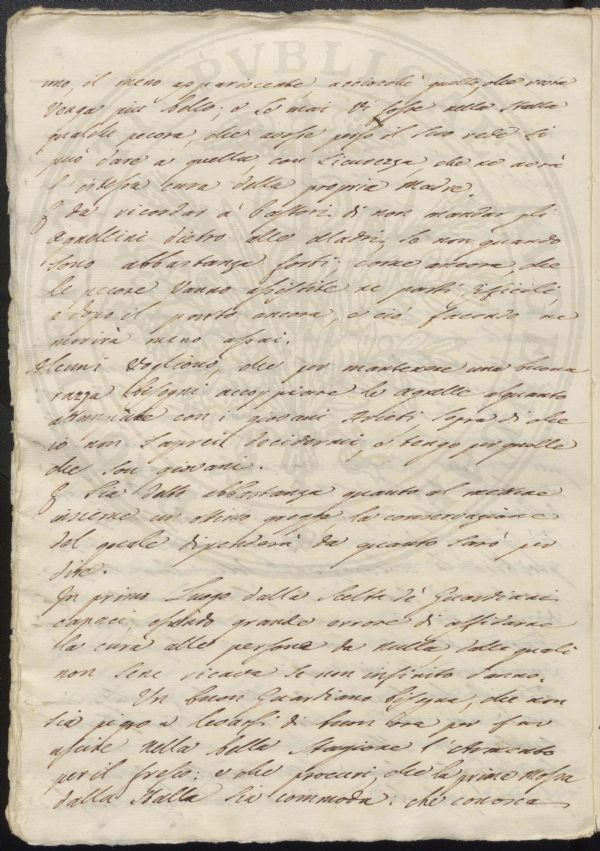 mo, il meno appariscente, acciocchè quello, che resta
venga più bello; e se mai vi fosse nella stalla
qualche pecora, che avesse perso il suo rede si
può dare a quella con sicurezza, che ne avrà
l'istessa cura della propria Madre.
È da ricordar a' Pastori di non mandar gli
Agnellini dietro alle Madri, se non quando
sono abbastanza forti; come ancora, che
le pecore vanno assistite ne' parti difficili,
e dopo il parto ancora, e ciò facendo ne
morirà meno assai.
Alcuni vogliono, che per mantenere una buona
razza bisogni accoppiare le agnelle alquanto
attempate con i giovani Arieti, sopra di che
io non saprei decidermi, e tengo per quelle
che son giovani.
E sia detto abbastanza quanto al mettere
insieme un ottimo gregge la conservazione
del quale dipenderà da quanto sarò per
dire.
In primo Luogo dalla scelta di Guardiani
capaci essendo grande errore di affidarne
la cura alle persone da nulla dalle quali
non sene ricava se non infinito danno.
Un buon Guardiano bisogna, che non
sia pigro a levarsi di buon'ora per far
uscire nella bella Stagione l'Armento
per il fresco: e che procuri, che la prima mossa
dalla Stalla sia commoda: che conosca